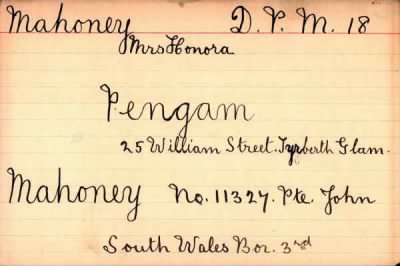 Mahoney D. P. M. 18
Mrs Honora
Pengam
25 William Street. Tyrberth Glam.
Mahoney No. 11327. Pte. John
South Wales Bor. 3rd